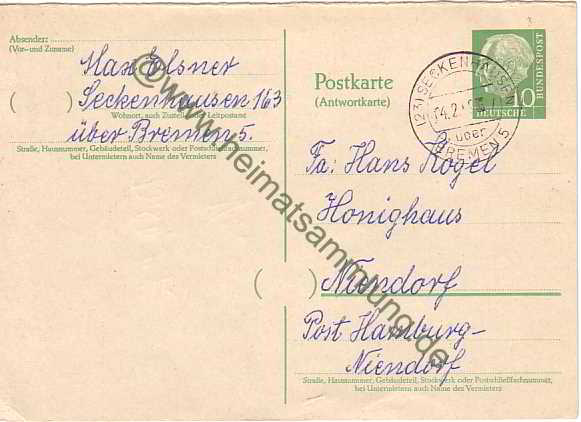 Absender:
(Vor- und Zuname)
Max Elsner
Seckenhausen 163
Wohnort, auch Zustell- oder Leitpostamt
über Bremen 5.
Straße, Hausnummer, Gebäudeteil, Stockwerk oder Postschließfachnummer,
bei Untermietern auch Name des Vermieters
Postkarte
(Antwortkarte)
(23) SECKENHAUSEN
14.2
über
BREMEN 5
DEUTSCHE
BUNDESPOST
10
Fa: Hans Kogel
Honighaus
Niendorf
Post Hamburg-
Niendorf
Straße, Hausnummer, Gebäudeteil, Stockwerk oder Postschließfachnummer,
bei Untermietern auch Name des Vermieters
©www.heimatsammlung.de